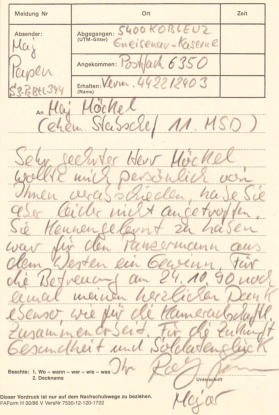 Meldung Nr
Ort
Zeit
Absender:
Maj
Papen
Abgegangen: 5400 KOBLENZ
(UTM-Gitter) Gneisenau-Kaserne
Angekommen: Postfach 6350
Erhalten: Verm. 442212403
(Name)
An Maj Möckel
(ehem Stabschef 11. MSD)
Sehr geehrter Herr Möckel
wollte mich persönlich von
Ihnen verabschieden, habe Sie
aber leider nicht angetroffen.
Sie kennengelernt zu haben
war für den Panzermann aus
dem Westen ein Gewinn. Für
die Betreuung am 24.10.90 noch
einmal meinen herzlichen Dank
ebenso wie für die kameradschaftl.
Zusammenarbeit. Für die Zukunft
Gesundheit und Soldatenglück
Ihr
Beachte: 1. Wo – wann – wer – wie – was
2. Deckname
Unterschrift
Major
Dieser Vordruck ist nur auf dem Nachschubwege zu beziehen.